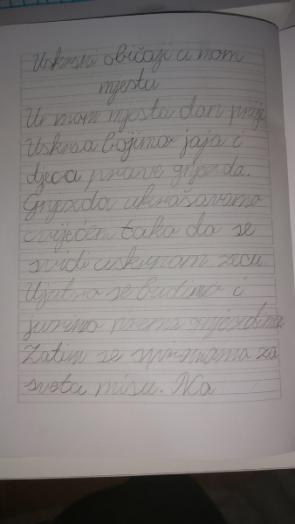 Uskrsni običaji u mom
mjestu
U mom mjestu dan prije
Uskrsa bojimo jaja i
djeca prave gnijezda.
Gnijezda ukrašavamo
cvijećem tako da se
svidi uskrsnom zecu.
Ujutro se budimo i
jurimo prema gnijezdima.
Zatim se spremamo za
svetu misu. Na